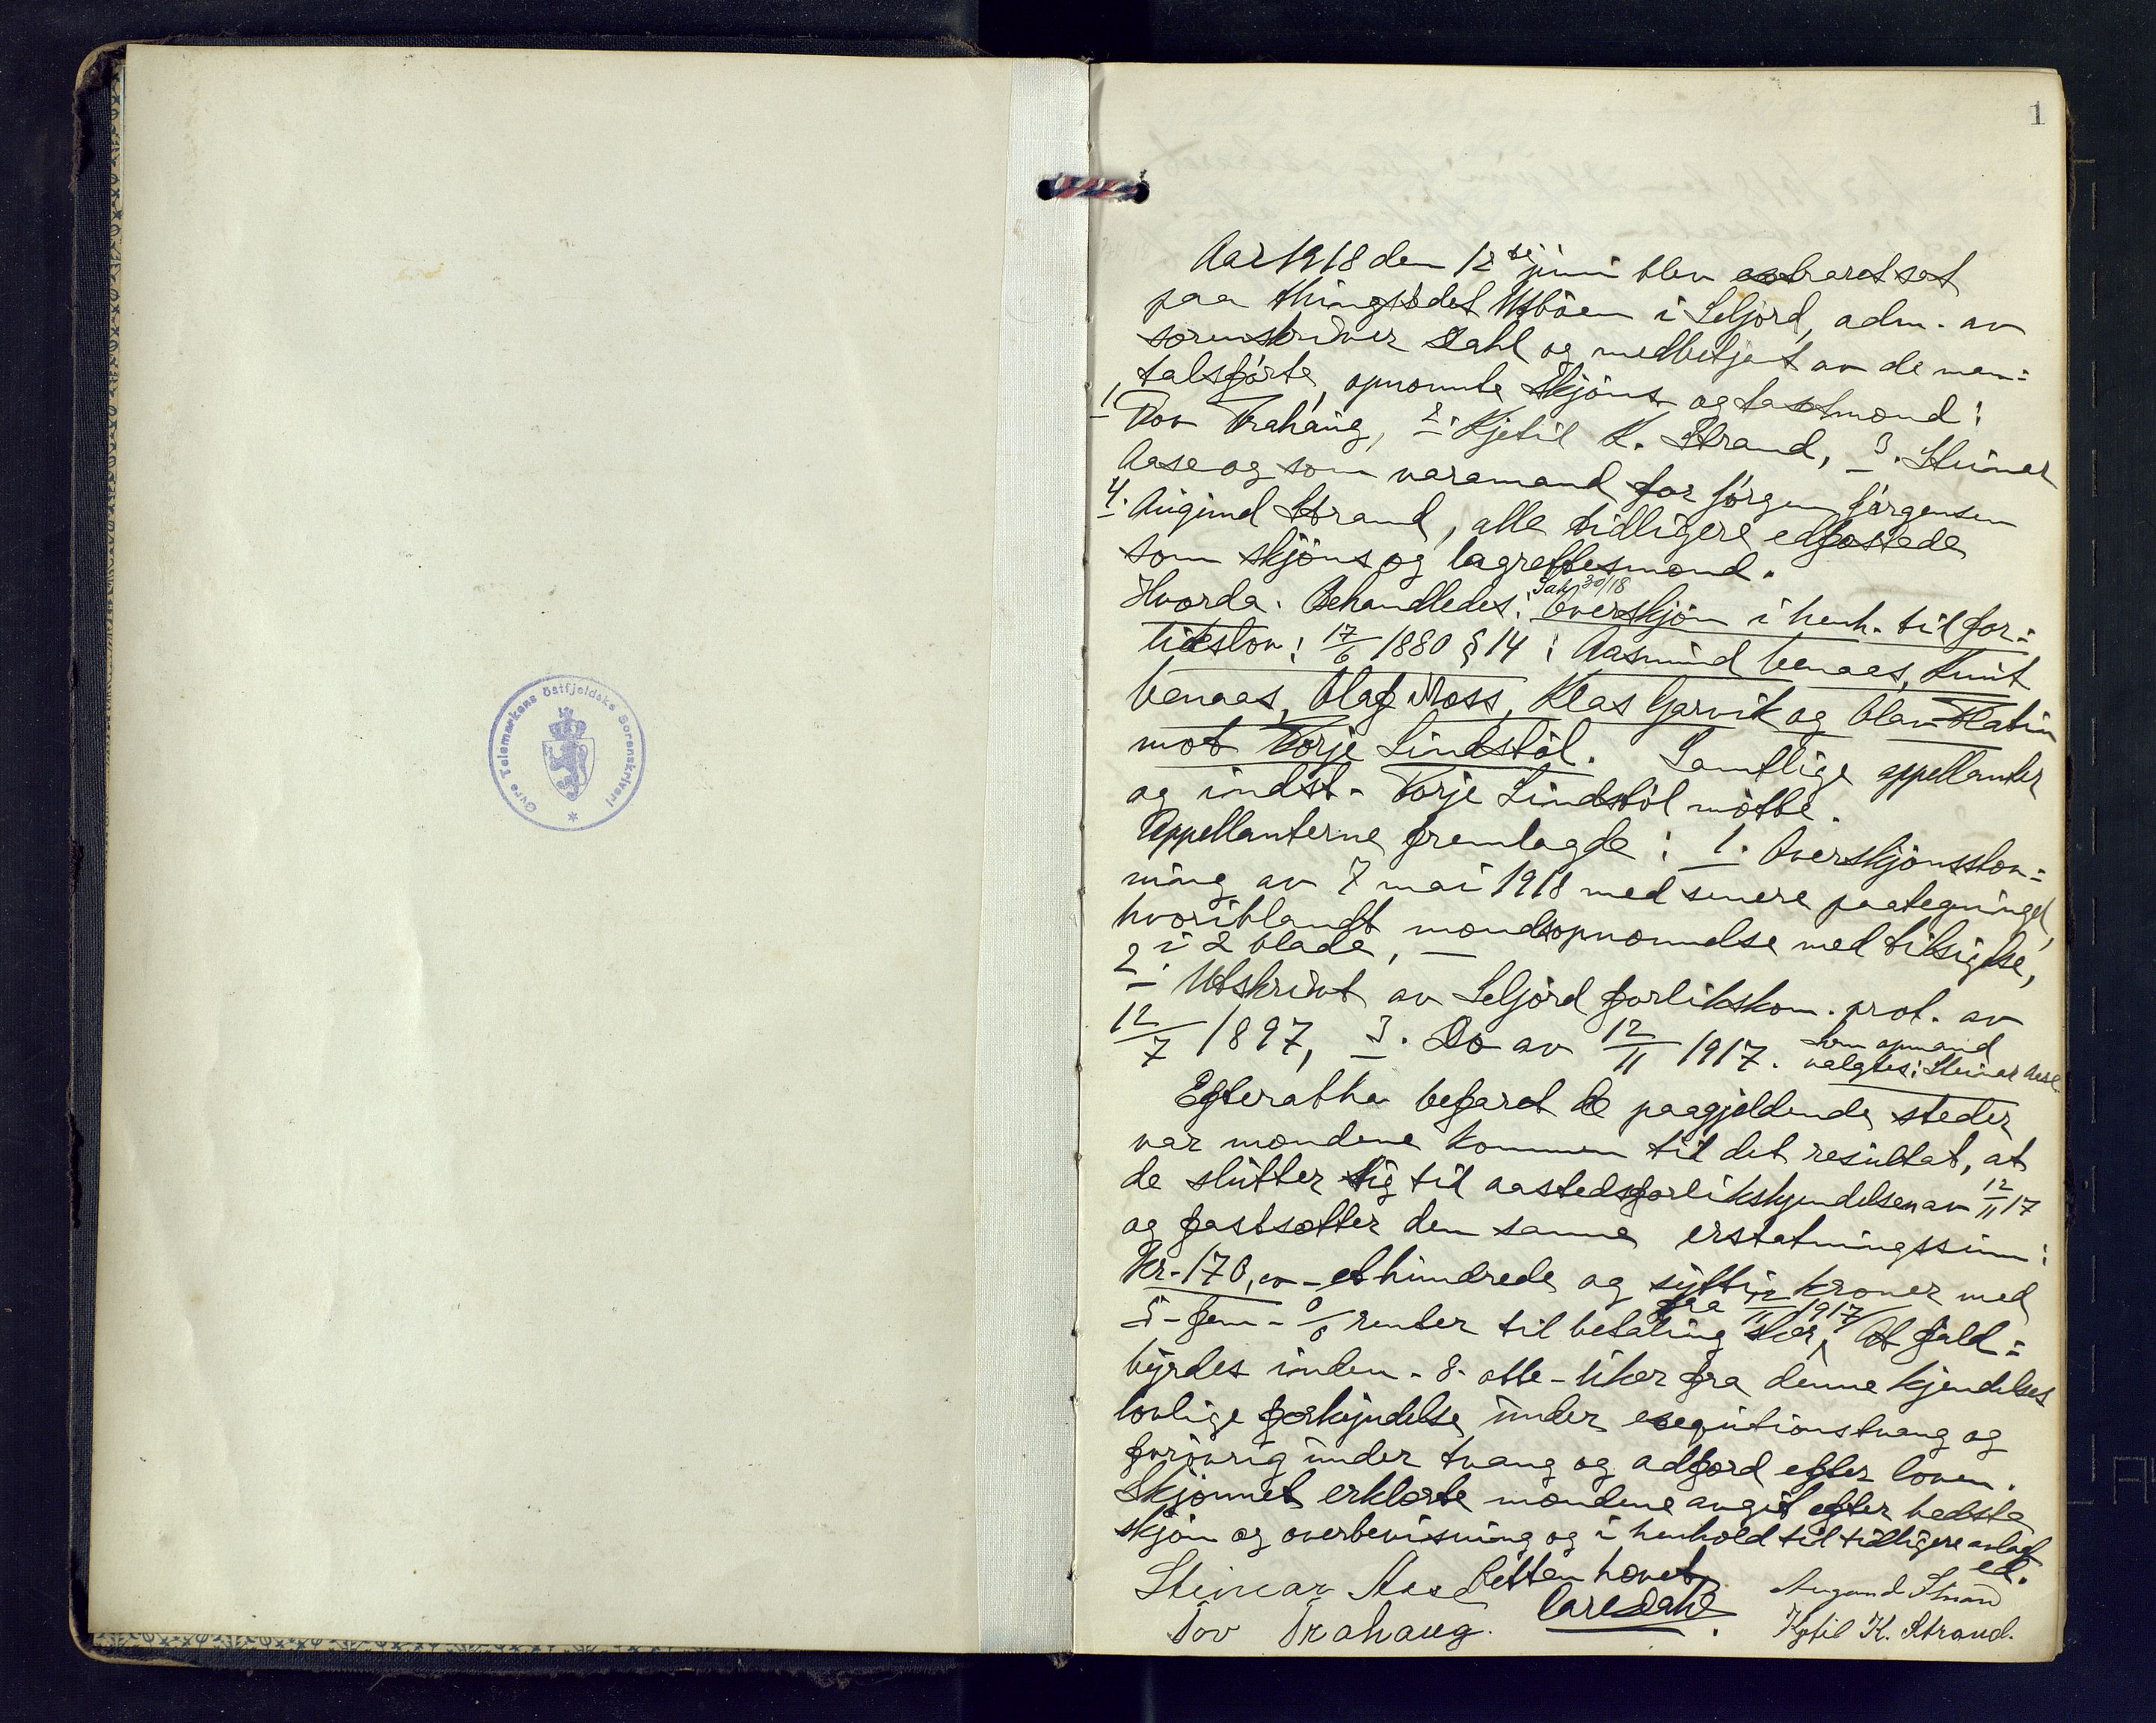 Øvre Telemarkens Østfjeldske Sorenskriveri
1
Aar 1918 den 12te juni blev extraret sat
paa thingstedet Utbøen i Seljord, adm. av
sorenskriver Dahl og medbetjent av de man=
talsførte, opnævnte skjøns og takstmænd:
1. Tov Trahaug, 2. Kjetil K. Strand, 3. Steinar
Aase og som varamand for Jørgen Jørgensen
4. Augund Strand, alle tidligere edfæstede
som skjøns og lagrettesmænd.
Sak 30/18
Hvorda. Behandledes: Overskjøn i henh. til for=
likslov: 17/6 1880 § 14: Aasmund Venaes, Knut
Venaas, Olaf Moss, Klas Garvik og Olav Flatin
mot Torje Lindstøl. Samtlige appellanter
og indst. Torje Lindstøl møtte.
Appellanterne fremlagde: 1. Overskjønsstev=
ning av 7 mai 1918 med senere paategninger,
hvoriblandt mændsopnævnelse med tilsigelse,
i 2 blade, –
2. Utskrivt av Seljord forlikskom. prot. av
12/7 1897, 3. Do av 12/11 1917. Som opmand
valgtes: Steinar Aase.
Efteratha befaret de paagjeldende steder
var mændene kommen til det resultat, at
de slutter sig til aastedsforlikskjendelsen av 12/11 17
og fastsætter den samme erstatningssum:
Kr. 170,oo – et hundrede og sytti kroner med
5 – fem – % renter til betaling sker, fra 12/11 1917 At fuld=
byrdes inden – 8. otte – uker fra denne kjendelses
lovlige forkyndelse under exequtionstvang og
forøvrig under tvang og adfærd efter loven.
Skjønnet erklærte mændene avgit efter bedste
skjøn og overbevisning og i henhold til tidligere avlagt
ed.
Retten hævet,
Steinar Aase
Carl Dahl
Augund Strand
Tov Trahaug.
Kjetil K. Strand.